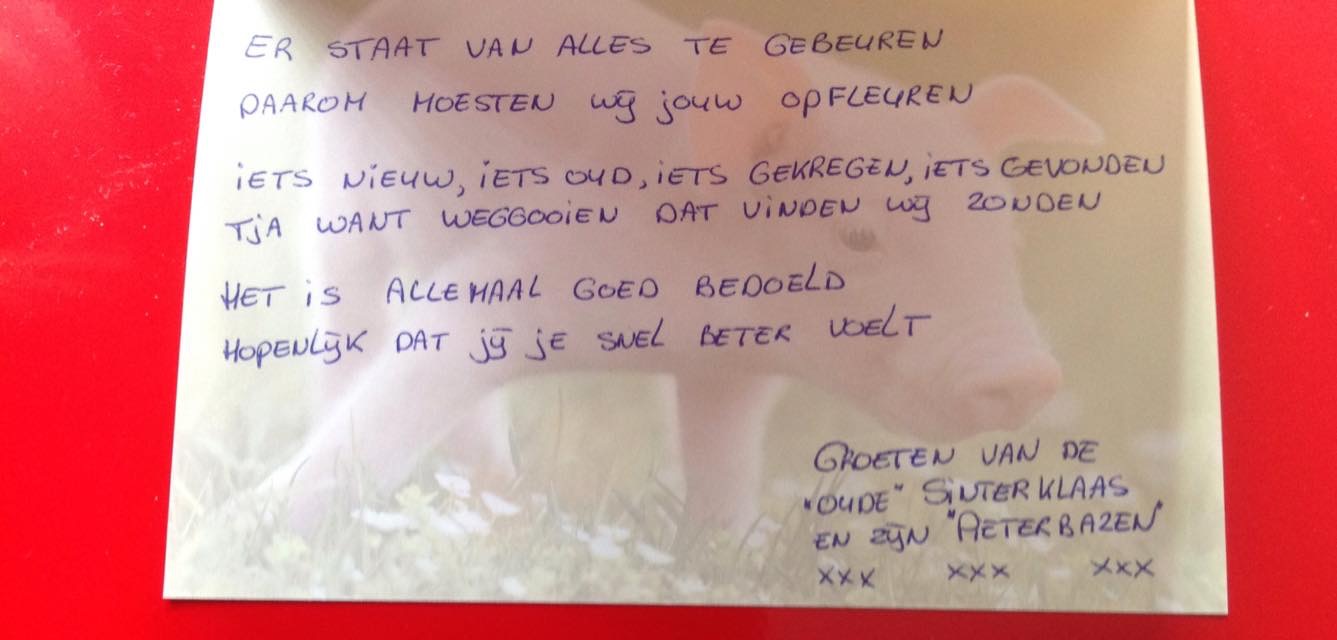 ER STAAT VAN ALLES TE GEBEUREN
DAAROM MOESTEN WIJ jOUW OPFLEUREN
iETS NiEUW, iETS OUD, iETS GEKREGEN, iETS GEVONDEN
TjA WANT WEGGOOiEN DAT ViNDEN WIJ ZONDEN
HET iS ALLEMAAL GOED BEDOELD
HOPENLIJK DAT JIJ jE SNEL BETER VOELT
GROETEN VAN DE
"OUDE" SiNTERKLAAS
EN ZIJN "PIETERBAZEN"
xxx xxx xxx